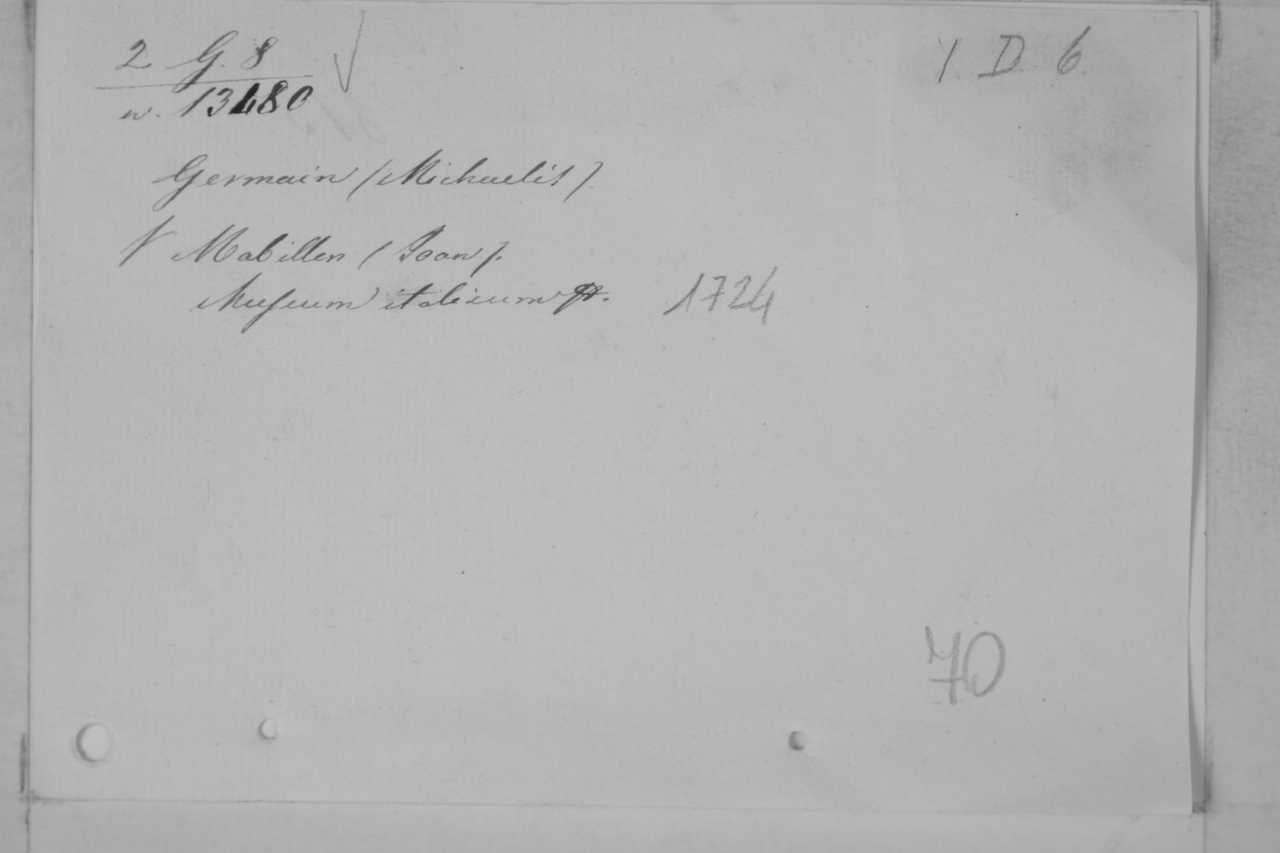 2 G. 8
Y D 6
n. 13480
Germain (Michaelis).
V Mabillon (Joan).
Museum italicum 1724
70